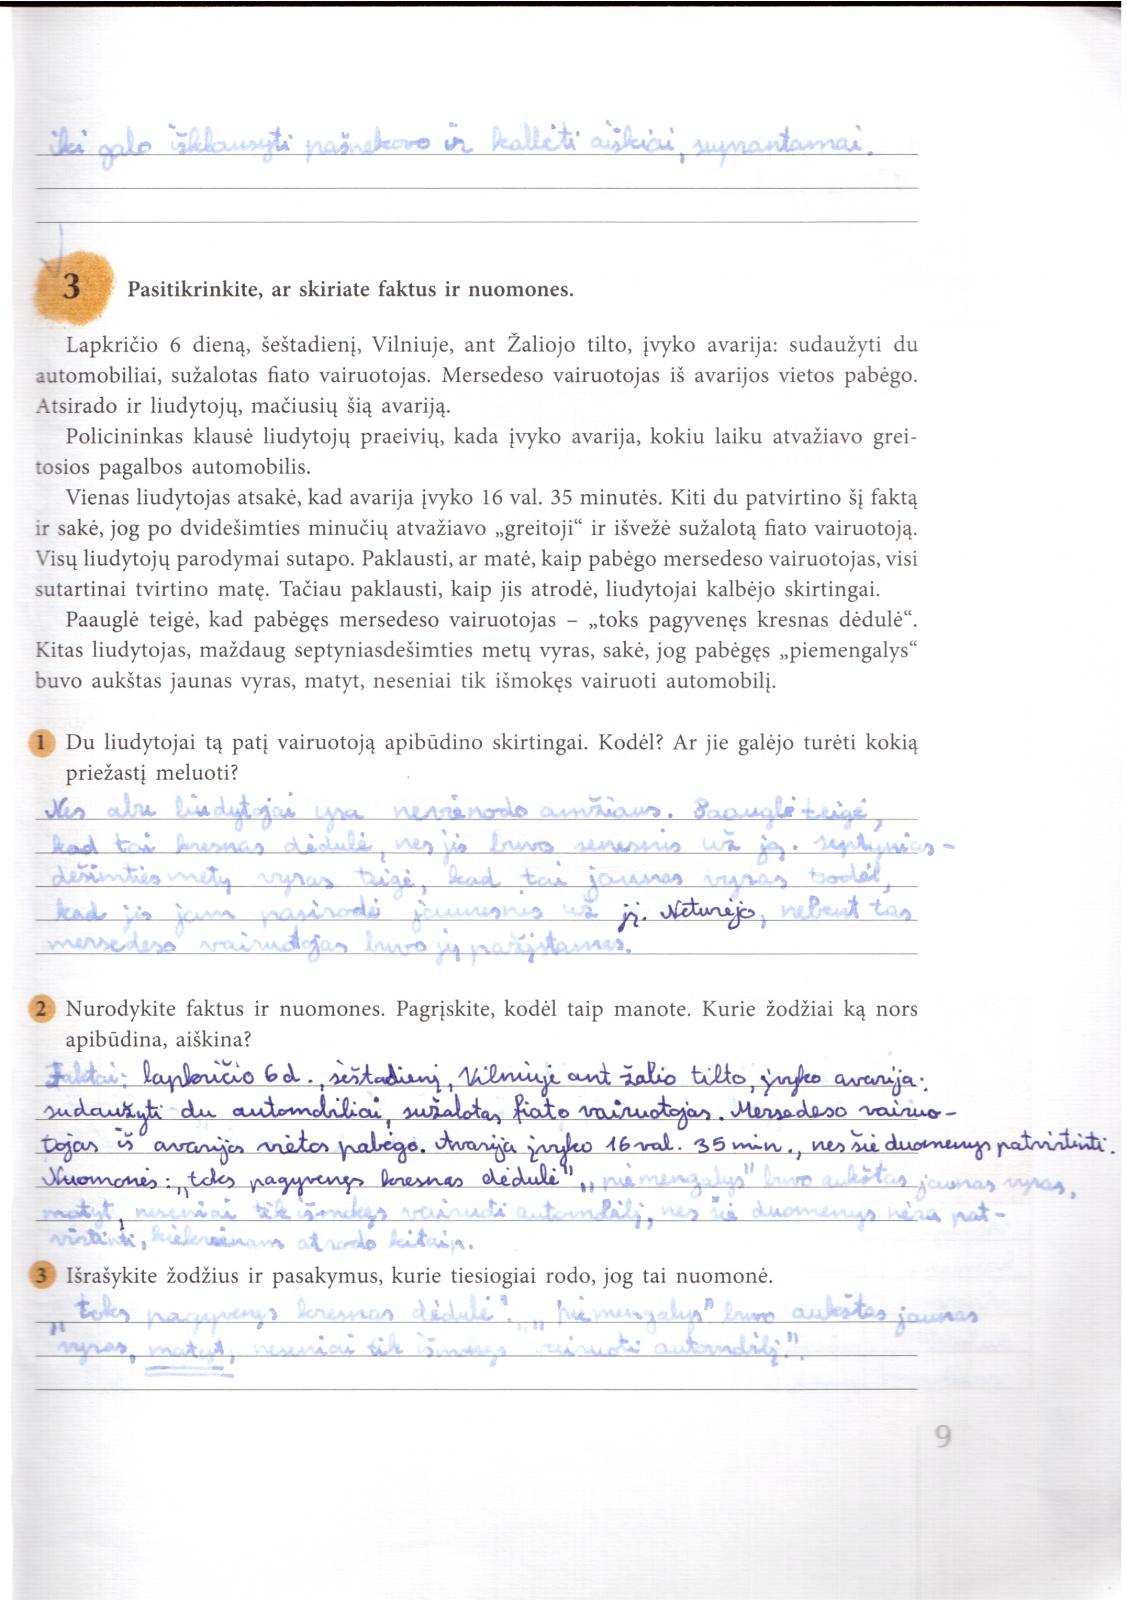 iki galo išklausyti pašnekovo ir kalbėti aiškiai, suprantamai.
3 Pasitikrinkite, ar skiriate faktus ir nuomones.
Lapkričio 6 dieną, šeštadienį, Vilniuje, ant Žaliojo tilto, įvyko avarija: sudaužyti du
automobiliai, sužalotas fiato vairuotojas. Mersedeso vairuotojas iš avarijos vietos pabėgo.
Atsirado ir liudytojų, mačiusių šią avariją.
Policininkas klausė liudytojų praeivių, kada įvyko avarija, kokiu laiku atvažiavo grei-
tosios pagalbos automobilis.
Vienas liudytojas atsakė, kad avarija įvyko 16 val. 35 minutės. Kiti du patvirtino šį faktą
ir sakė, jog po dvidešimties minučių atvažiavo „greitoji“ ir išvežė sužalotą fiato vairuotoją.
Visų liudytojų parodymai sutapo. Paklausti, ar matė, kaip pabėgo mersedeso vairuotojas, visi
sutartinai tvirtino matę. Tačiau paklausti, kaip jis atrodė, liudytojai kalbėjo skirtingai.
Paauglė teigė, kad pabėgęs mersedeso vairuotojas – „toks pagyvenęs kresnas dėdulė“.
Kitas liudytojas, maždaug septyniasdešimties metų vyras, sakė, jog pabėgęs „piemengalys“
buvo aukštas jaunas vyras, matyt, neseniai tik išmokęs vairuoti automobilį.
1 Du liudytojai tą patį vairuotoją apibūdino skirtingai. Kodėl? Ar jie galėjo turėti kokią
priežastį meluoti?
Nes abu liudytojai yra nevienodo amžiaus. Paauglė teigė,
kad tai kresnas dėdulė, nes jis buvo senesnis už ją. septynias-
dešimties metų vyras teigė, kad tai jaunas vyras todėl,
kad jis jam pasirodė jaunesnis už jį. Neturėjo, nebent tas
mersedeso vairuotojas buvo jų pažįstamas.
2 Nurodykite faktus ir nuomones. Pagrįskite, kodėl taip manote. Kurie žodžiai ką nors
apibūdina, aiškina?
Faktai: lapkričio 6 d., šeštadienį, Vilniuje ant žalio tilto, įvyko avarija:
sudaužyti du automobiliai, sužalotas fiato vairuotojas. Mersedeso vairuo-
tojas iš avarijos vietos pabėgo. Avarija įvyko 16 val. 35 min., nes šie duomenys patvirtinti.
Nuomonės: „toks pagyvenęs kresnas dėdulė" „piemengalys" buvo aukštas jaunas vyras,
matyt, neseniai tik išmokęs vairuoti automobilį, nes šie duomenys nėra pat-
virtinti, kiekvienam atrodo kitaip.
3 Išrašykite žodžius ir pasakymus, kurie tiesiogiai rodo, jog tai nuomonė.
„toks pagyvenęs kresnas dėdulė". „„piemengalys" buvo aukštas jaunas
vyras, matyt, neseniai tik išmokęs vairuoti automobilį."
9